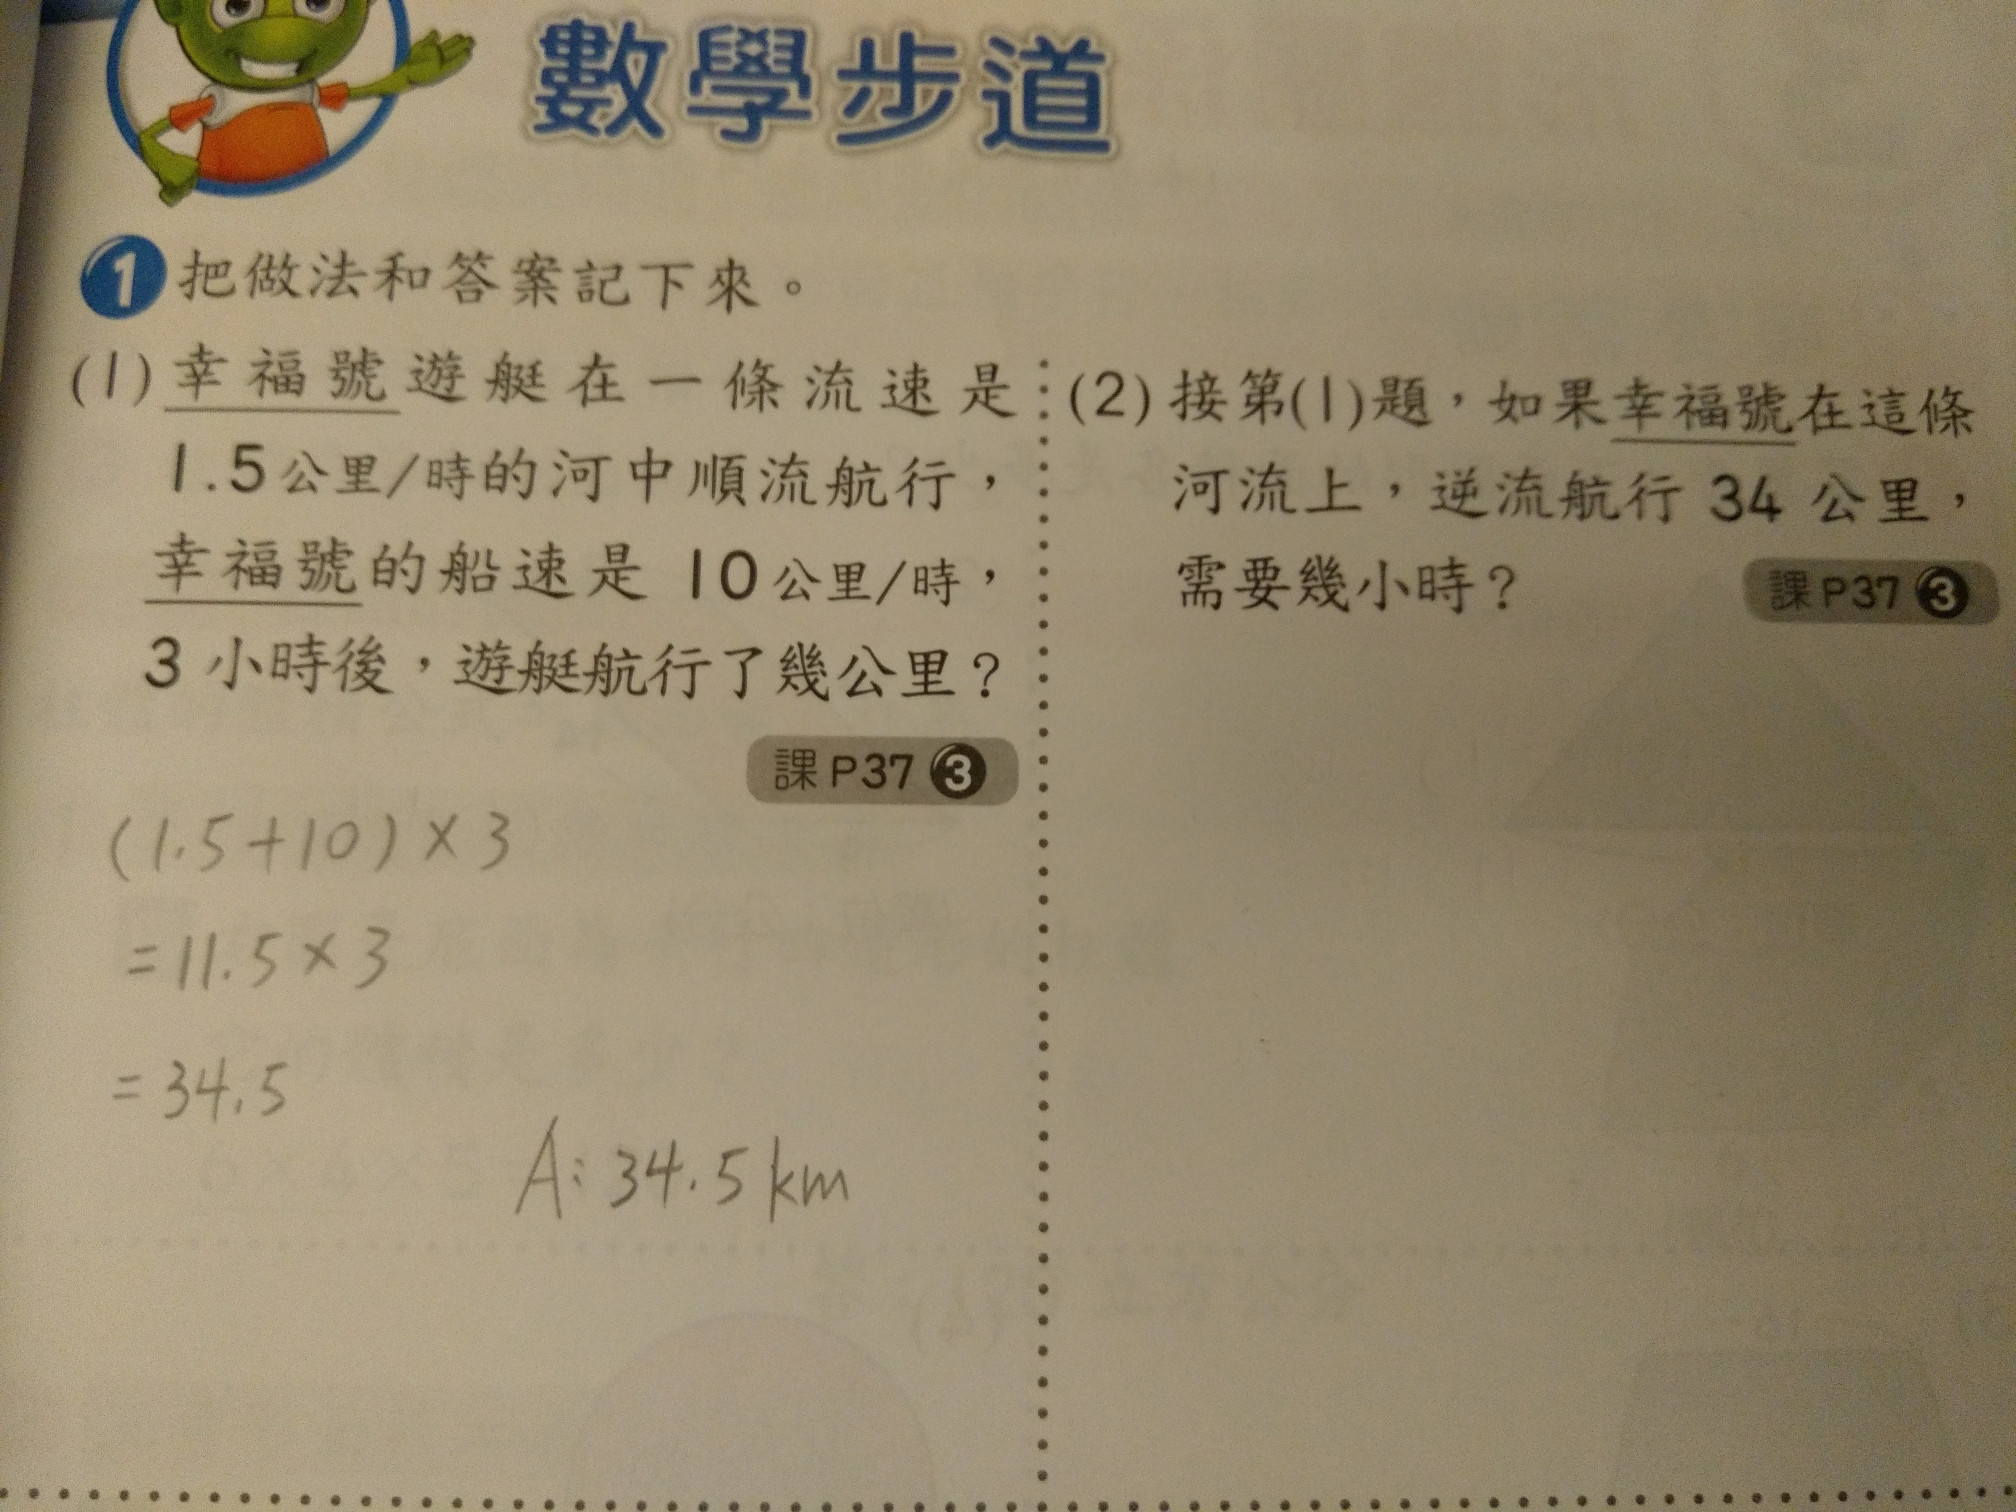 數學步道
1 把做法和答案記下來。
(1) 幸福號遊艇在一條流速是
1.5公里/時的河中順流航行，
幸福號的船速是 10公里/時，
3 小時後，遊艇航行了幾公里？
課P37 3
(1.5+10)×3
=11.5×3
=34.5
A:34.5km
(2) 接第(1)題，如果幸福號在這條
河流上，逆流航行 34 公里，
需要幾小時？
課P37 3